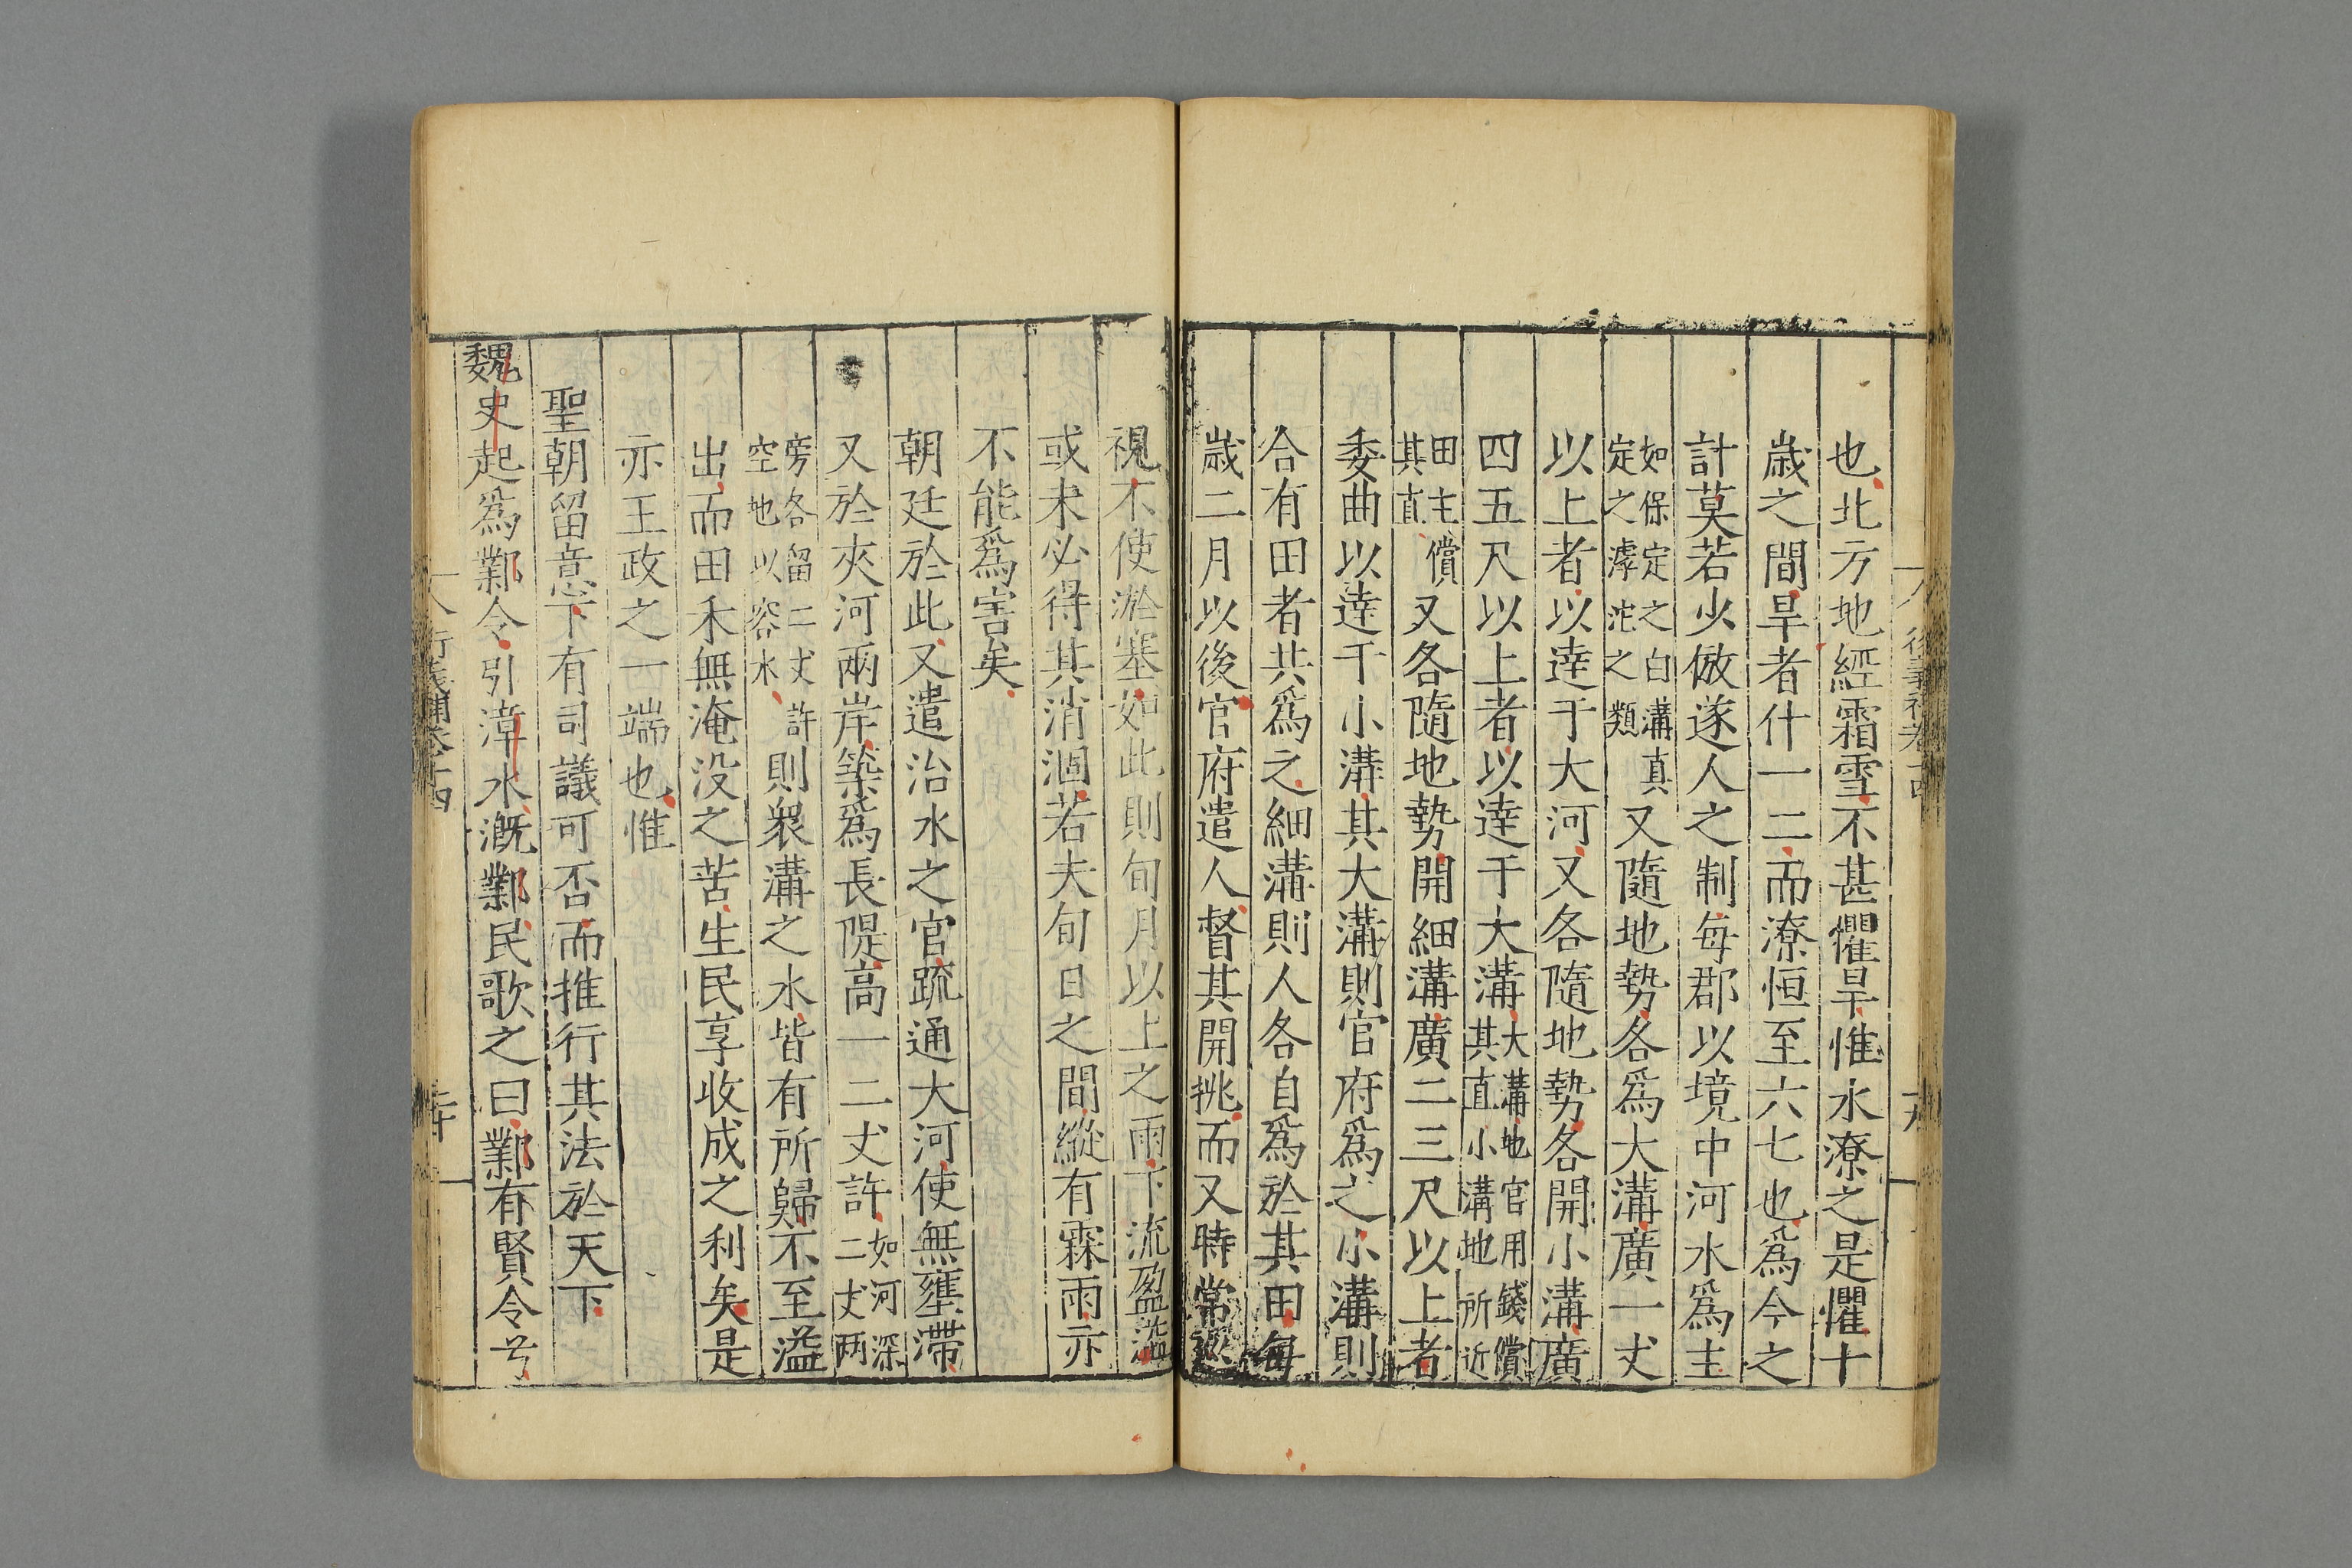 也北方地經霜雪不甚懼旱惟水潦之是懼十
歲之間旱者什一二而潦恒至六七也爲今之
計莫若少倣遂人之制每郡以境中河水爲主
如保定之白溝真
定之滹沱之類
又隨地勢各爲大溝廣一丈
以上者以達于大河又各隨地勢各開小溝廣
四五尺以上者以達于大溝
大溝地官用錢償
其直小溝地所近
田主償
其直
又各隨地勢開細溝廣二三尺以上者
委曲以達于小溝其大溝則官府爲之小溝則
合有田者共爲之細溝則人各自爲於其田每
歲二月以後官府遣人督其開挑而又時常巡
視不使淤塞如此則旬月以上之雨下流盈溢
或未必得其消涸若夫旬日之間縱有霖雨亦
不能爲害矣
朝廷於此又遣治水之官疏通大河使無壅滯
又於夾河兩岸築爲長隄高一二丈許
如河深
二丈两
旁各留二丈許
空地以容水
則衆溝之水皆有所歸不至溢
出而田禾無淹没之苦生民享收成之利矣是
亦王政之一端也惟
聖朝留意下有司議可否而推行其法於天下
魏史起爲鄴令引漳水溉鄴民歌之曰鄴有賢令兮
衍義補卷十四